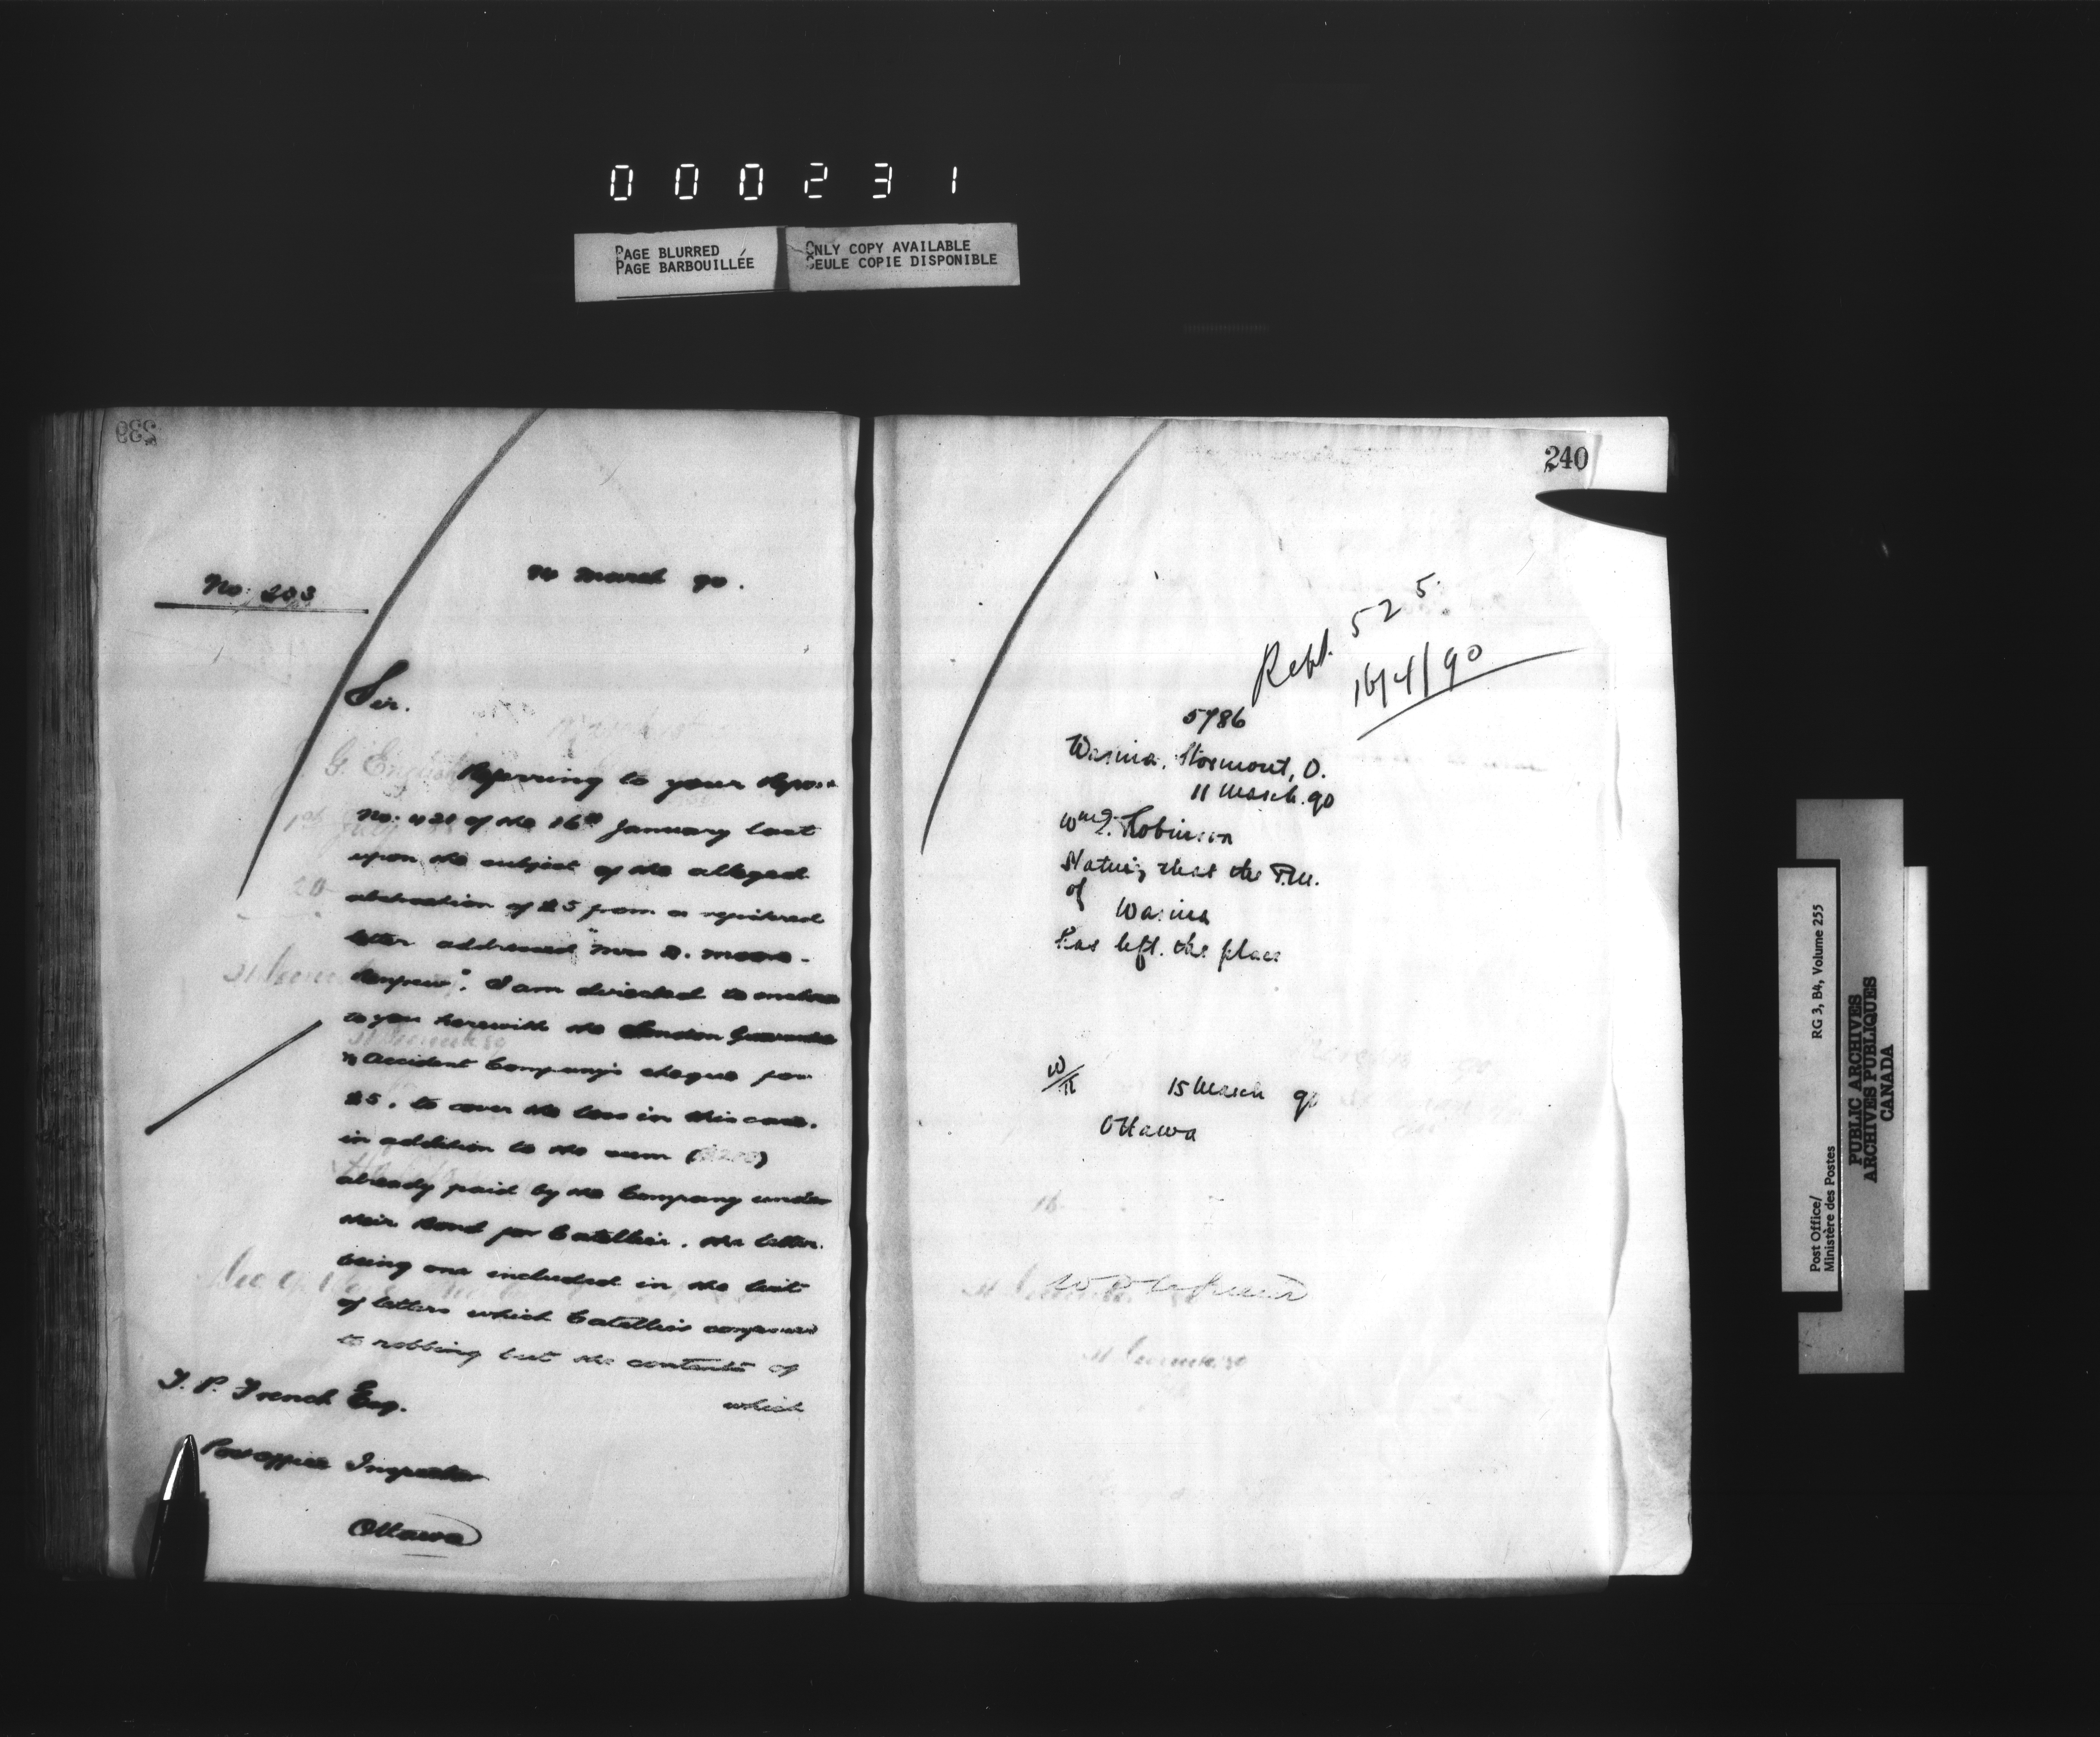 000231
PAGE BLURRED
PAGE BARBOUILLÉE
ONLY COPY AVAILABLE
SEULE COPIE DISPONIBLE
239
No. 233
14 March 90.
Sir.
Referring to your Report
No. 421 of the 16th January last
upon the subject of the alleged
abstraction of $5 from a registered
letter addressed "Mrs D. Moore.
Renfrew". I am directed to enclose
to you herewith the London Guarantee
& Accident Company's cheque for
$5. to cover the loss in this case.
in addition to the sum ($200)
already paid by the Company under
their Bond for Catellier. the letter
being one included in the list
of letters which Catellier confessed
to robbing but the contents of
which
T. P. French Esq.
Post Office Inspector
Ottawa
240
Rept. 525
16/4/90
5786
Warina, Stormont, O.
11 March. 90
Wm Robinson
Stating that the P.M.
of Warina
has left the place
15 March 90
Ottawa
RG 3, B4, Volume 255
Post Office/
Ministère des Postes
PUBLIC ARCHIVES
ARCHIVES PUBLIQUES
CANADA